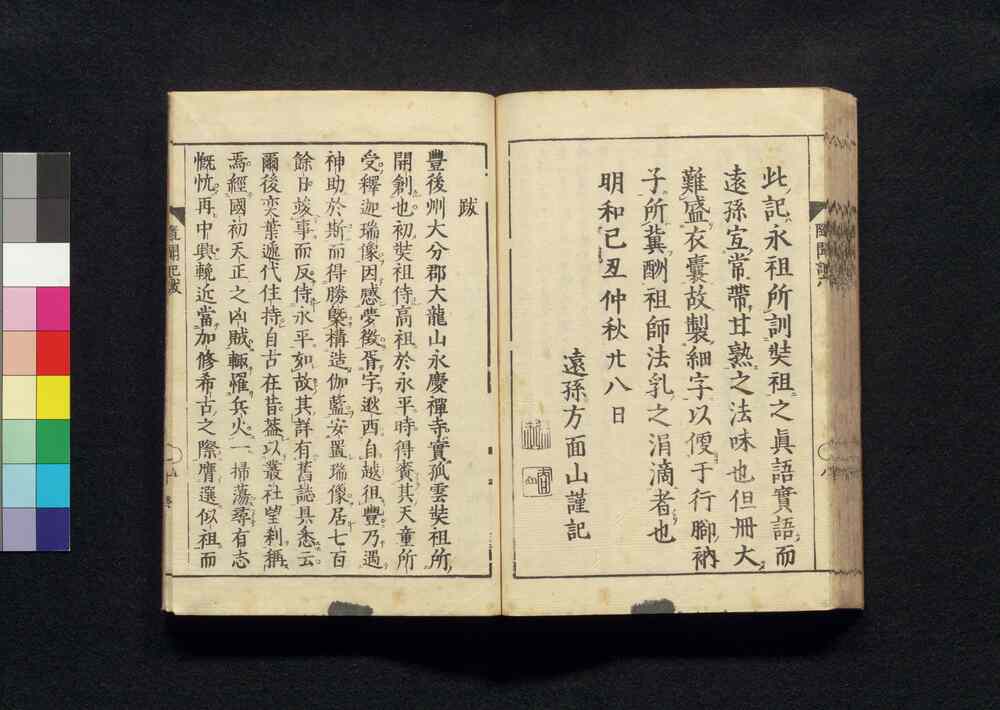 此記永祖所訓奘祖之眞語實語而
遠孫宜常帶甘熟之法味也但冊大
難盛衣嚢故製細字以便于行脚衲
子所冀酬祖師法乳之涓滴者也
明和己丑仲秋廿八日
遠孫方面山謹記
跋
豐後州大分郡大龍山永慶禪寺實孤雲奘祖所
開創也初奘祖侍高祖於永平時得賚其天童所
受釋迦瑞像因感夢徴胥宇逖西自越徂豐乃遇
神助於斯而得勝槩構造伽藍安置瑞像居七百
餘日竣事而反侍永平如故其詳有舊誌具悉云
爾後奕葉遞代住持自古在昔葢以叢社望刹稱
焉經國初天正之凶賊輙罹兵火一掃蕩尋有志
慨忱再中興輓近當加修希古之際膺選似祖而
隨聞記
八
隨聞記跋